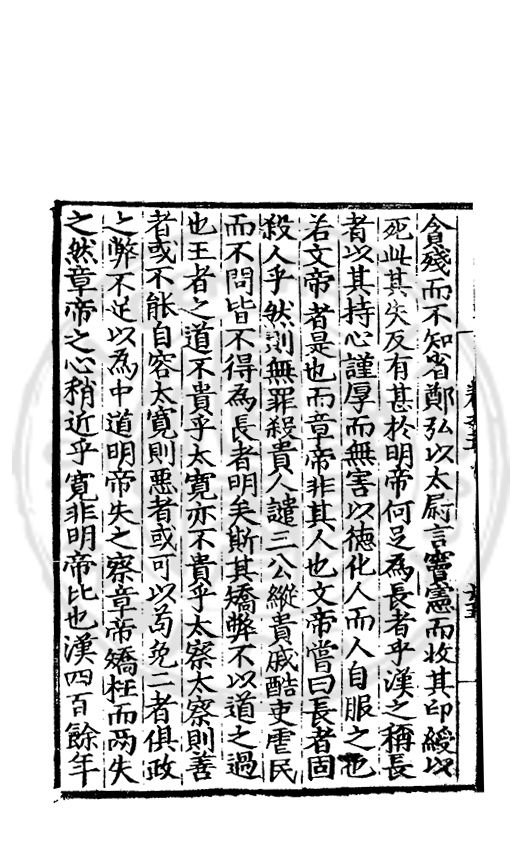 貪殘而不知省鄭弘以太尉言竇憲而收其印綬以
死此其失反有甚於明帝何足為長者乎漢之稱長
者以其持心謹厚而無害以德化人而人自服之也
若文帝者是也而章帝非其人也文帝嘗曰長者固
殺人乎然則無罪殺貴人譴三公縱貴戚酷吏虐民
而不問皆不得為長者明矣斯其矯弊不以道之過
也王者之道不貴乎太寬亦不貴乎太察太察則善
者或不能自容太寬則惡者或可以苟免二者俱政
之弊不足以為中道明帝失之察章帝矯枉而兩失
之然章帝之心稍近乎寬非明帝比也漢四百餘年